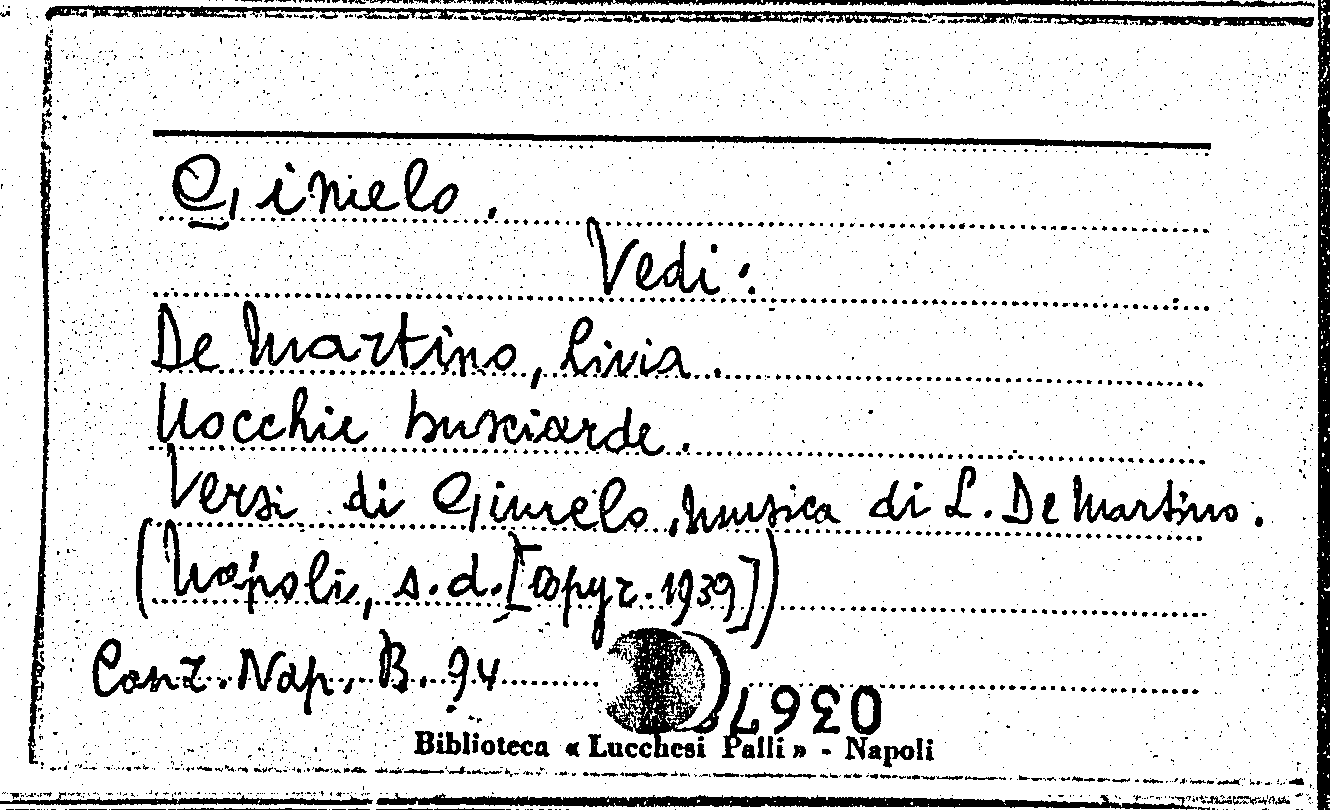 Gimelo.
Vedi:
De Martino, Livia.
Uocchie busciarde.
Versi di Gimelo, musica di L. De Martino.
(Napoli, s.d. [copyr. 1939])
Canz. Nap. B. 94
Biblioteca « Lucchesi Palli » - Napoli